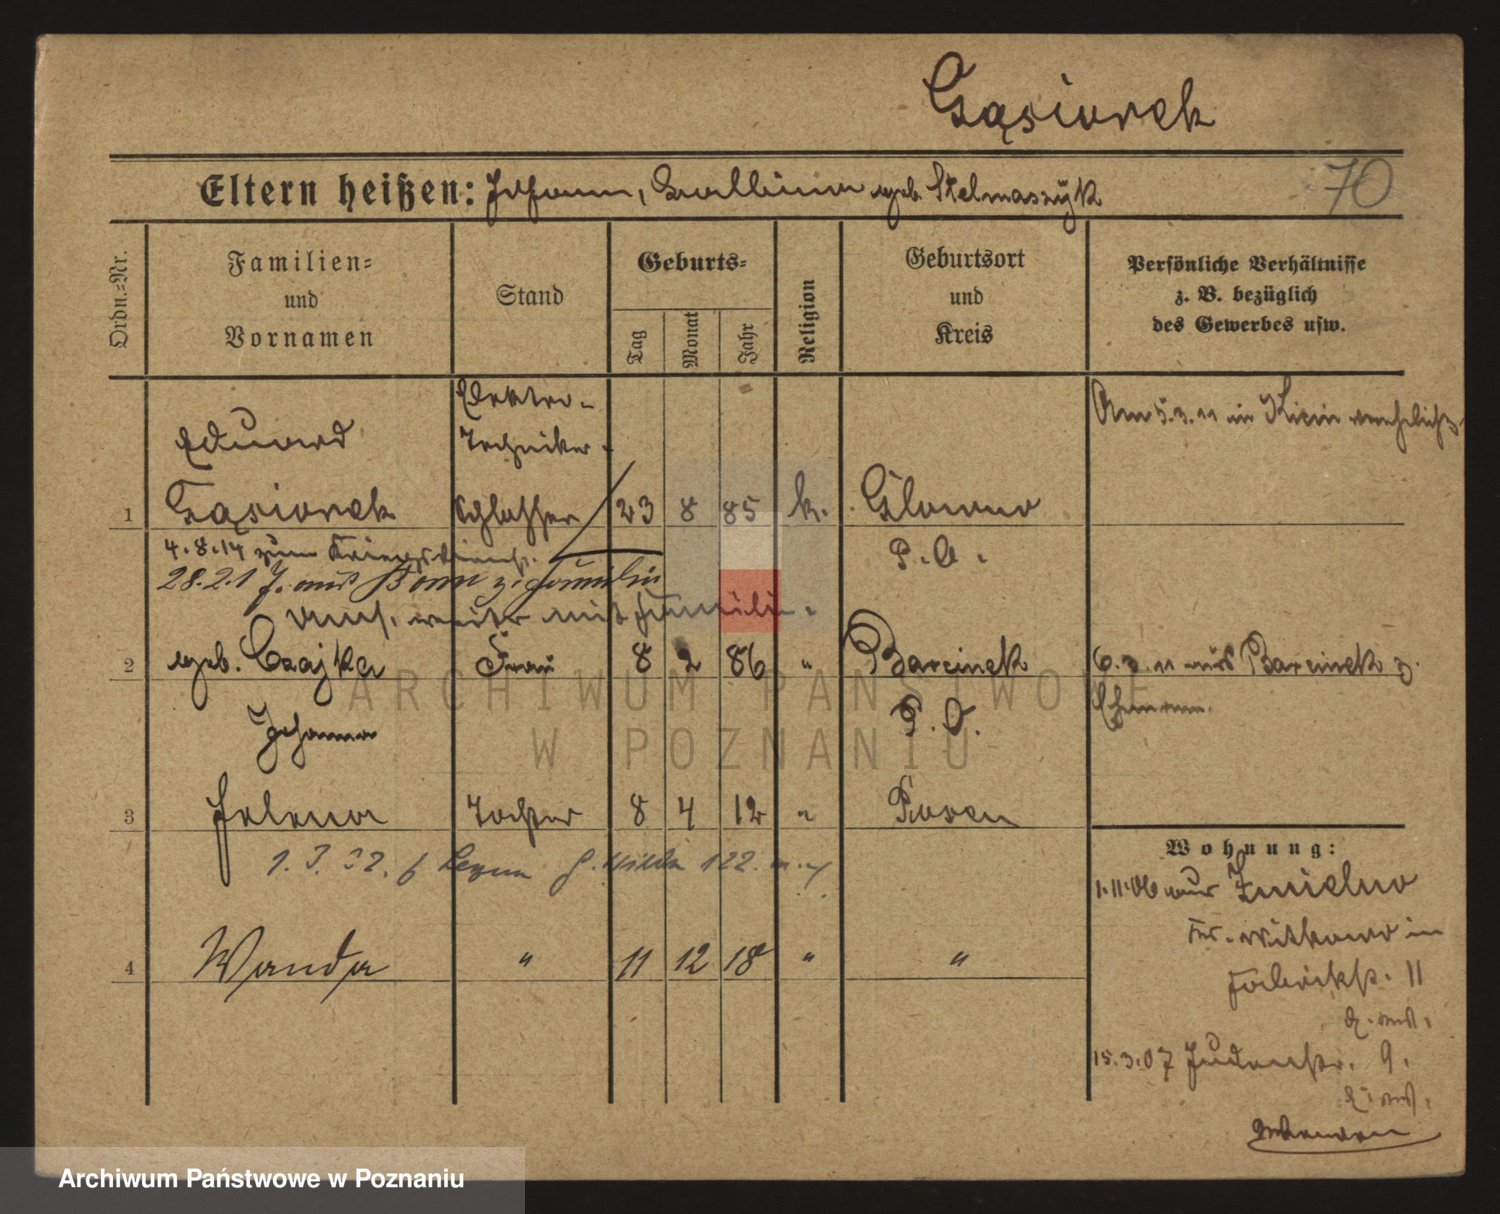 Gąsiorek
Eltern heißen: Johann, Ballbina geb. Stelmaszyk
70
Ordn.-Nr.
Familien-
und
Vornamen
Stand
Geburts-
Tag
Monat
Jahr
Religion
Geburtsort
und
Kreis
Persönliche Verhältnisse
z. B. bezüglich
des Gewerbes usw.
Elektro-
Eduard
Techniker
Am 5.3.11 in verehelicht
1 Gąsiorek Schlosser 23 8 85 k. Glowno
4.8.14 zum Kriegsdienst.
P. O.
28.2.1 aus Bonn z. Familie
weiter mit Familie
2 geb. Czajka Frau 8 2 86 " Barcinek 6.3.11 aus Barcinek z.
Johanna
P. O.
Ehemann
3 Helena Tochter 8 4 12 " Posen
122.
Wohnung:
1.11.06 aus Zmielno
Kr. Witkowo in
Fabrikstr. 11
4 Wanda " 11 12 18 " "
15.3.07 Judenstr. 9.
ARCHIWUM PAŃSTWOWE
W POZNANIU
Archiwum Państwowe w Poznaniu